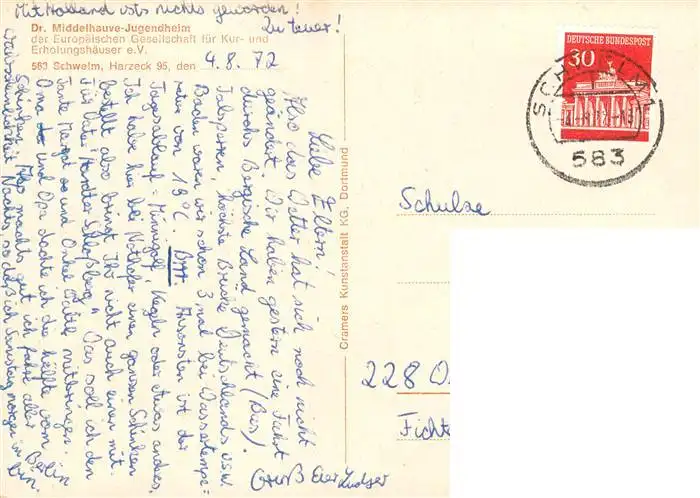 Mit Holland ists nichts geworden!
Zu teuer!
Dr. Middelhauve-Jugendheim
der Europäischen Gesellschaft für Kur- und
Erholungshäuser e.V.
583 Schwelm, Harzeck 95, den 4.8.72
Liebe Eltern!
Also das Wetter hat sich noch nicht
geändert. Wir haben gestern eine Fahrt
durchs Bergische Land gemacht (Bus).
Talsperren, höchste Brücke Deutschlands usw.
Baden waren wir schon 3mal bei Wassertempe=
ratur von 19°C. Ansonsten ist der
Tagesablauf - Minigolf, Kegeln oder etwas anderes.
Ich habe hier bei einen ganzen Schinken
bestellt also bringt Ihr nicht auch einen mit.
Für Vater Schloßberg" Das soll ich den
Tante Margot und Onkel mitbringen.
Oma und Opa dachte ich die Hälfte vom
Schinken. Also machts gut ich fahre aller
Nachts, so daß ich Samstag morgen in
Berlin
bin.
Gruß Euer Ludger
Cramers Kunstanstalt KG, Dortmund
DEUTSCHE BUNDESPOST
30
SCHWELM 1
583
Schulze
228 O
Fichte